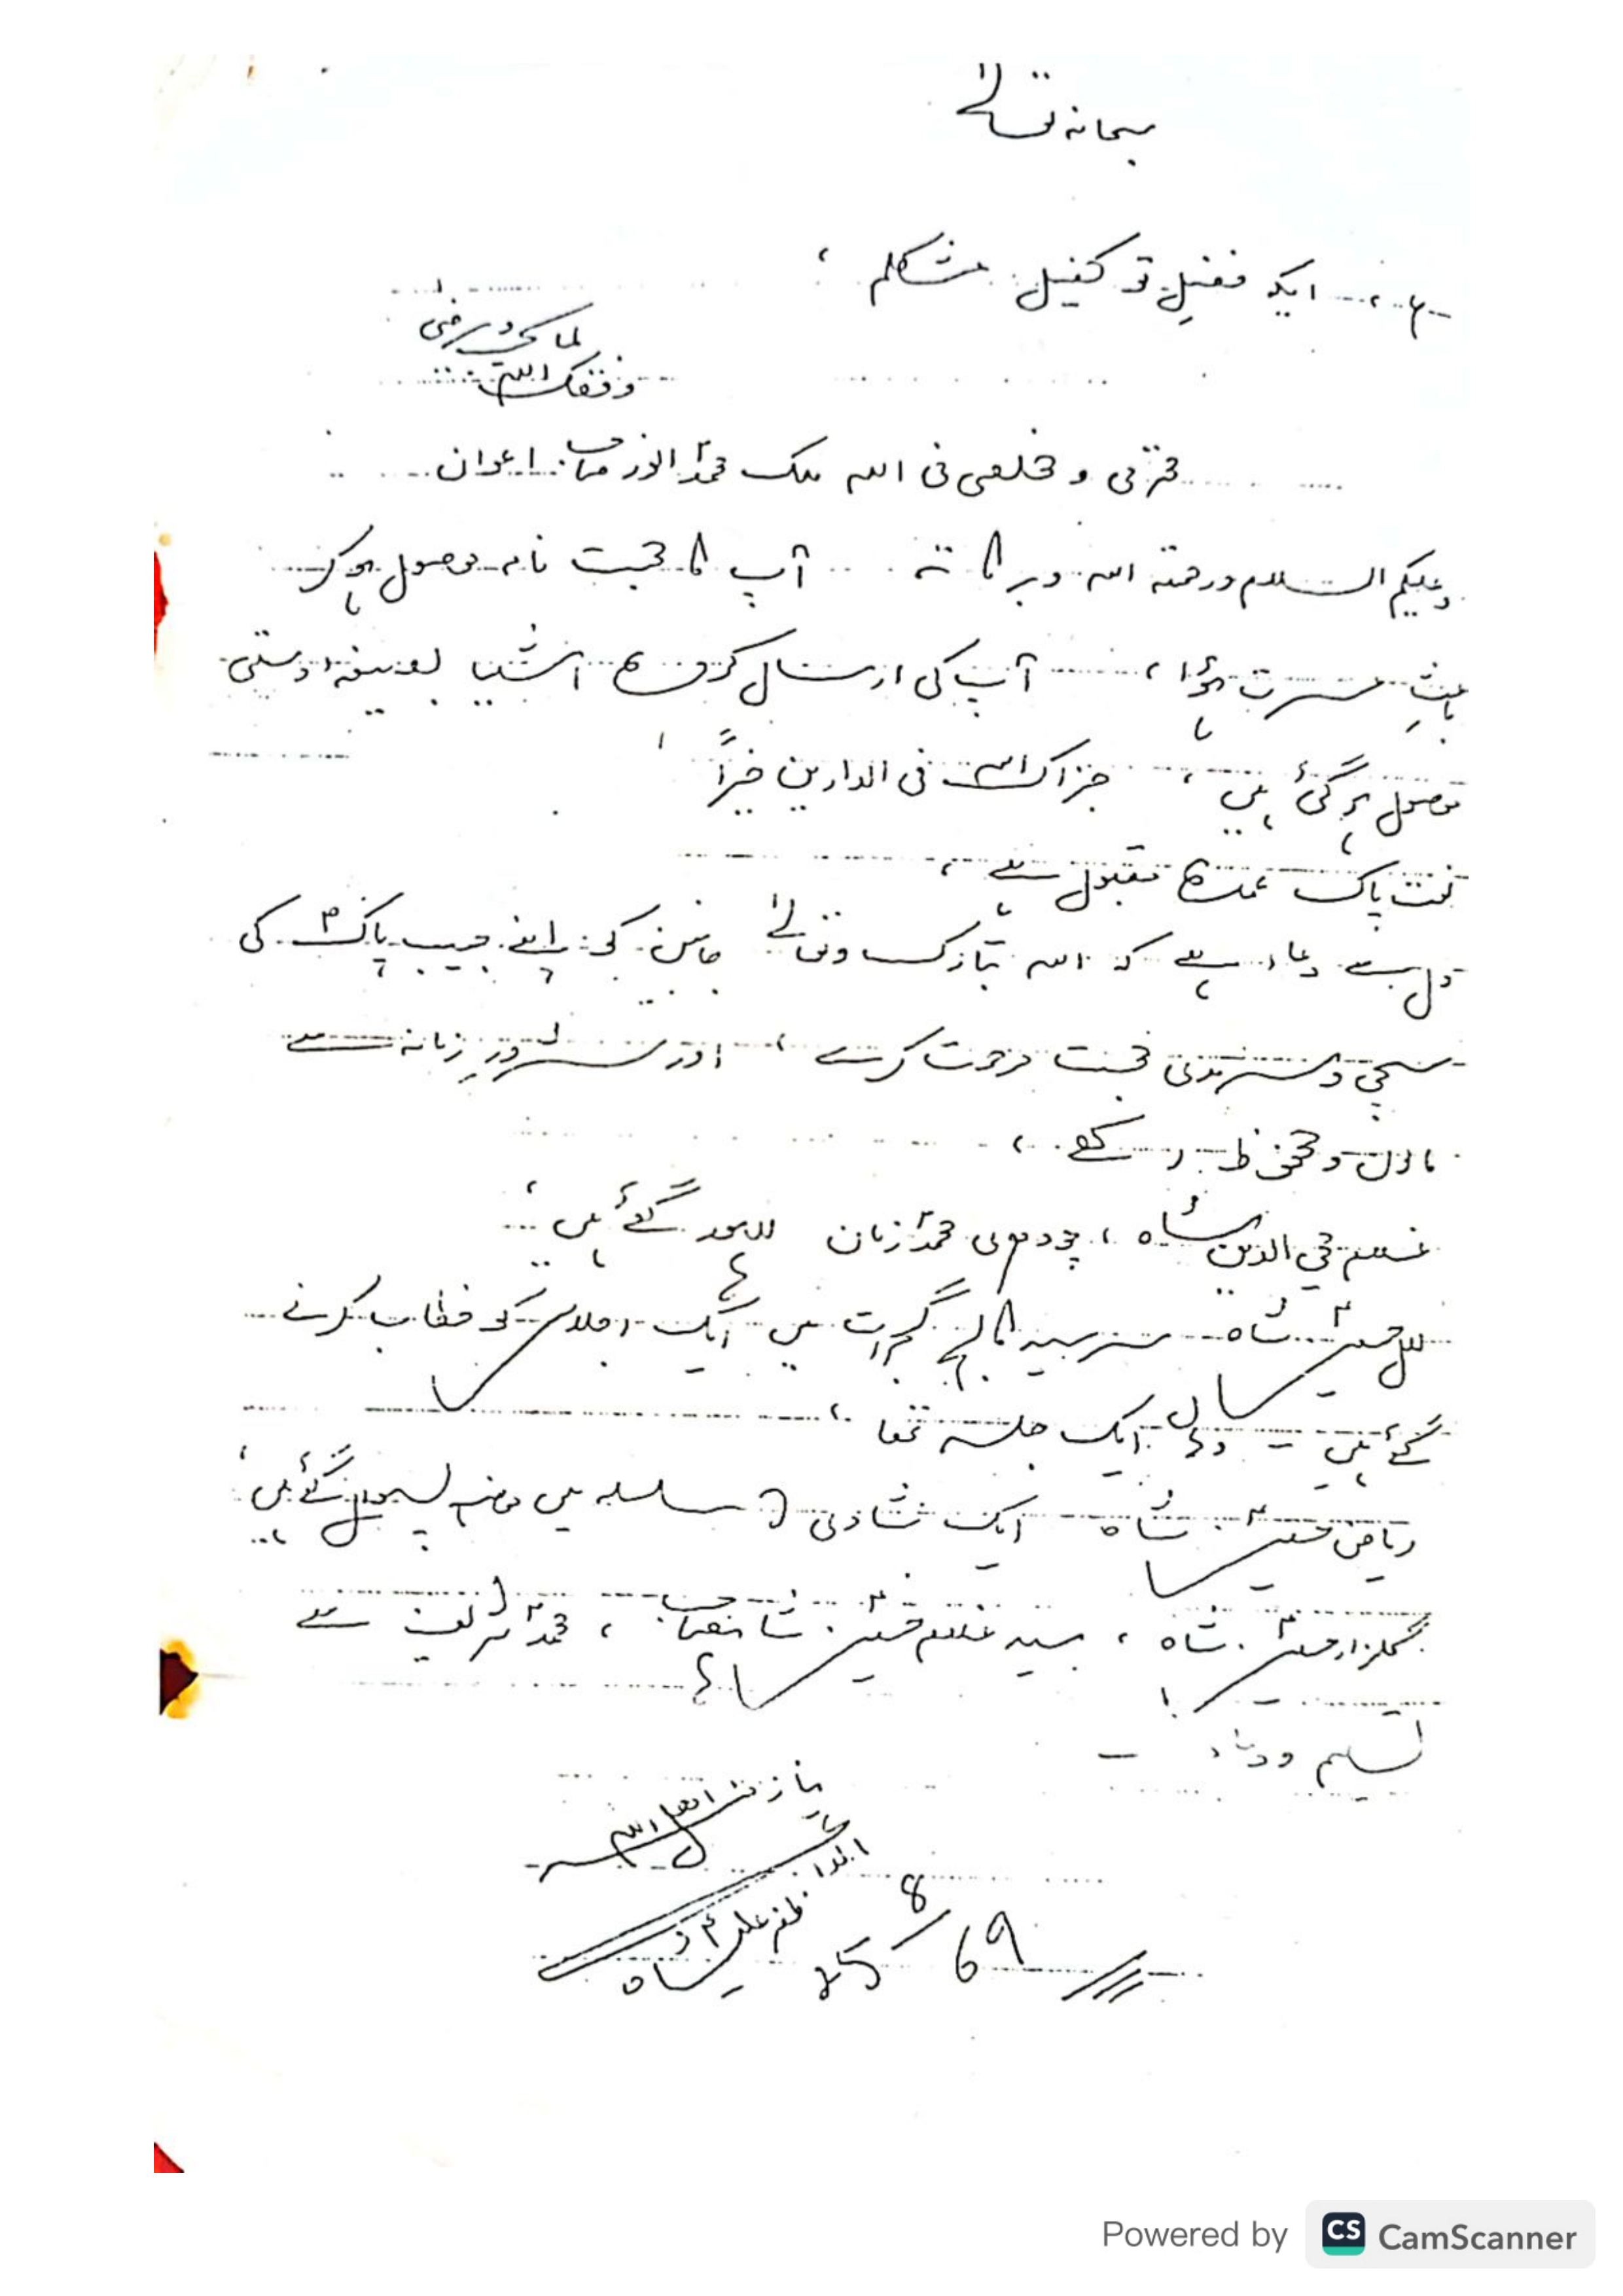 سبحانہ تعالےٰ
اے فضلِ تو کفیل مشکلم ،
لما یحب و یرضی
وفقک اللہ
محترمی و مخلصی فی اللہ ملک محمدؐ انور صاحب اعوان
وعلیکم السلام ورحمتہ اللہ وبرکاتہ آپ کا محبت نامہ موصول ہو کر
باعثِ مسرت ہؤا ، آپ کی ارسال کردہ اشیا
موصول ہو گئی ہیں ، جزاک اللہ فی الدارین خیراً
مقبول ہے ،
دل سے دعا ہے کہ اللہ تبارک وتعالےٰ اپنے حبیب پاکؐ کی
سچی و سرمدی محبت مرحمت کرے ، اور شرورِ زمانہ سے
مامون و محفوظ رکھے ،
غلام محی الدین شاہ ، چودھری محمدؐ زمان لاہور گئے ہیں ،
لال حسینؑ شاہ زمیندار کالج گجرات میں ایک اجلاس کو خطاب کرنے
گئے ہیں - وہاں ایک جلسہ تھا ،
ریاض حسینؑ شاہ ایک شادی کے سلسلہ میں گئے ہیں ،
گلزار حسینؑ شاہ ، سید غلام حسینؑ شاہ صاحب ، محمدؐ شریف سے
تسلیم و دعاء -
ظفر علیؑ شاہ
25/8/69
Powered by CS CamScanner